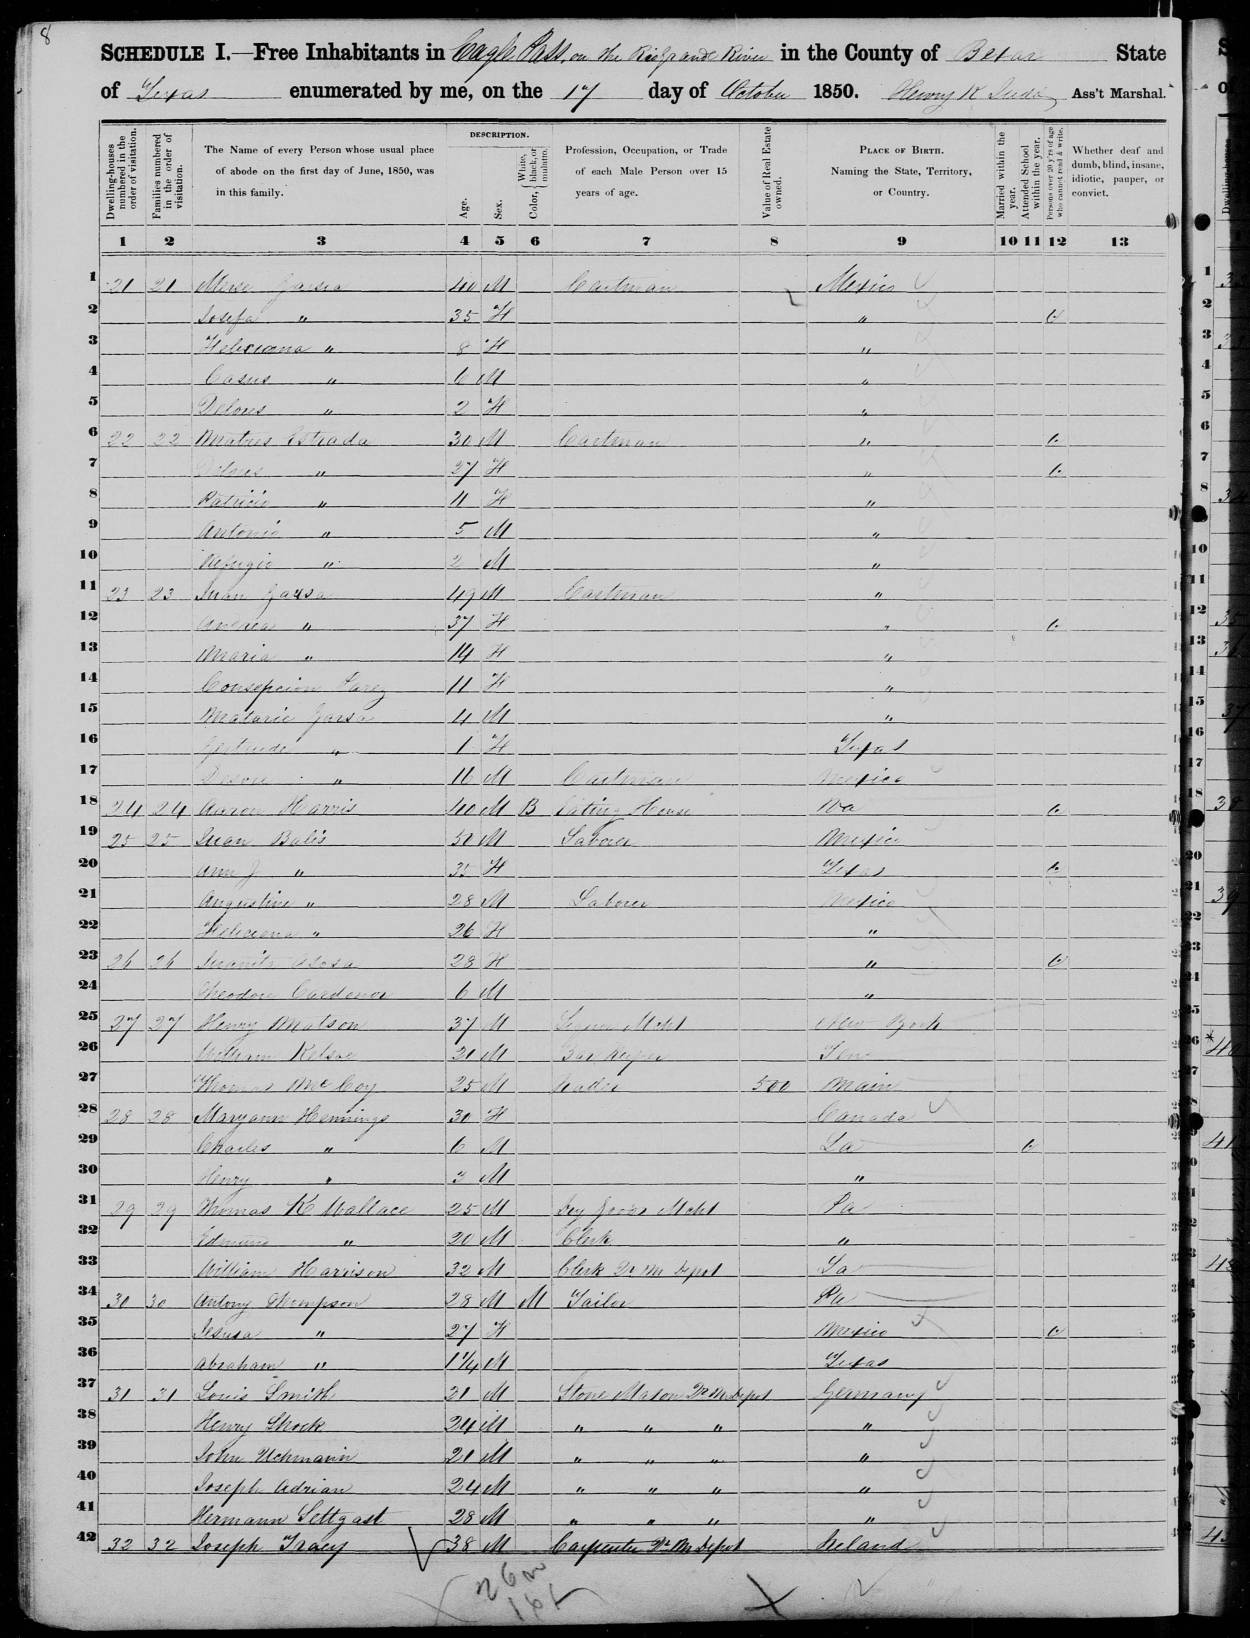 8
SCHEDULE I.—Free Inhabitants in Eagle Pass, on the Rio Grande River in the County of Bexar State
of Texas enumerated by me, on the 17 day of October 1850. Henry K Judd Ass't Marshal.
Dwelling-houses numbered in the order of visitation.
Families numbered in the order of visitation.
The Name of every Person whose usual place of abode on the first day of June, 1850, was in this family.
DESCRIPTION.
Age.
Sex.
Color, White, black, or mulatto.
Profession, Occupation, or Trade of each Male Person over 15 years of age.
Value of Real Estate owned.
PLACE OF BIRTH. Naming the State, Territory, or Country.
Married within the year.
Attended School within the year.
Persons over 20 y'rs of age who cannot read & write.
Whether deaf and dumb, blind, insane, idiotic, pauper, or convict.
1 2 3 4 5 6 7 8 9 10 11 12 13
1 21 21 40 M Cartman Mexico
2 Josefa " 35 F "
3 " 8 F "
4 Casus " 6 M "
5 Delores " 2 F "
6 22 22 Estrada 30 M Cartman "
7 Delores " 27 F "
8 Patricio " 11 F "
9 Antonio " 5 M "
10 Refugio " 2 M "
11 23 23 Juan Garsa 49 M Cartman "
12 Andrea " 37 F "
13 Maria " 14 F "
14 Consepcion Parez 11 F "
15 Garsa 4 M "
16 Gertrude " 1 F Texas
17 " 16 M Cartman Mexico
18 24 24 Aaron Harris 40 M B Eating House Va
19 25 25 Juan 51 M Laborer Mexico
20 Ann J " 35 F Texas
21 Augustine " 28 M Laborer Mexico
22 " 26 F "
23 26 26 Juanita 28 F "
24 Theodore Cardenas 6 M "
25 27 27 Henry Matson 37 M Mcht New York
26 William Kelsoe 21 M Bar Keeper Ten
27 Thomas McCoy 25 M 500 Main
28 28 28 Maryann Hennings 30 F Canada
29 Charles " 6 M La
30 Henry " 3 M "
31 29 29 Thomas K Wallace 25 M Dry Goods Mcht Pa
32 Edmund " 20 M Clerk "
33 William Harrison 32 M Clerk Qr Mr Depot La
34 30 30 Antony Thompson 28 M M Tailor Pa
35 Jesusa " 27 F Mexico
36 Abraham " 1 1/4 M Texas
37 31 31 Louis Smith 21 M Stone Mason Qr Mr Depot Germany
38 Henry Shock 24 M " " " "
39 John Uchmann 20 M " " " "
40 Joseph Adrian 24 M " " " "
41 Hermann Settgast 28 M " " " "
42 32 32 Joseph Tracy 38 M Carpenter Qr Mr Depot Ireland